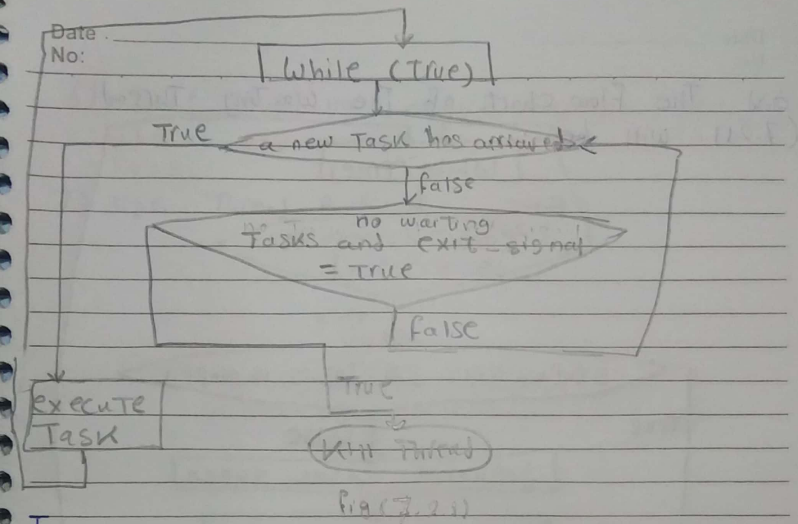 Date
No:
While (True)
True
a new Task has arrived
false
no waiting
Tasks and exit_signal
= True
false
True
execute
Task
Kill Thread